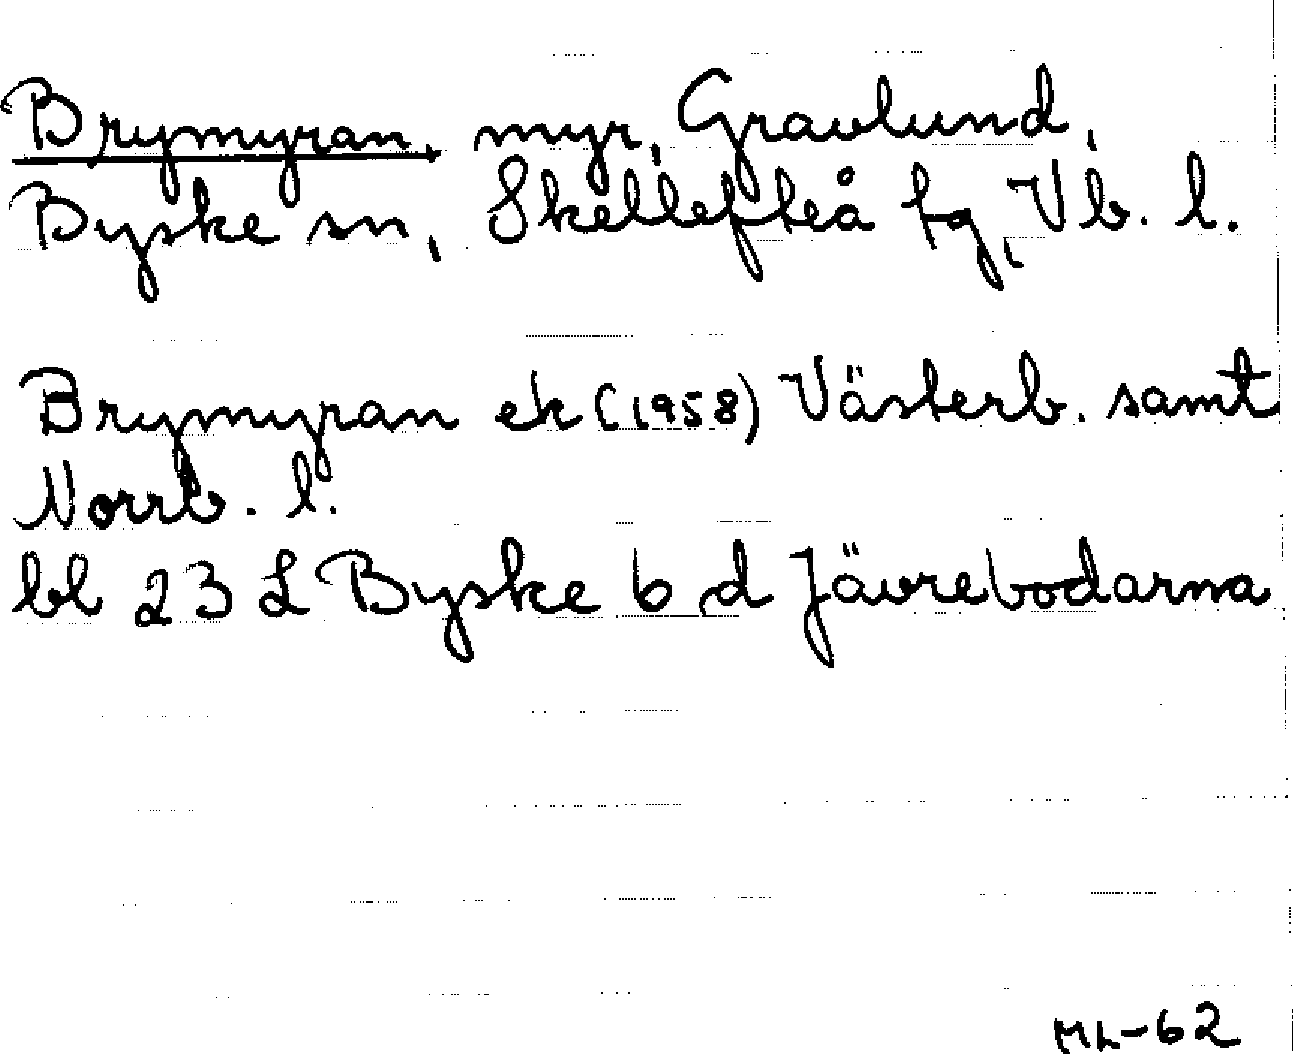 Brymyran, myr, Gravlund,
Byske sn, Skellefteå tg, Vb. l.
Brymyran ek (1958) Västerb. samt
Norrb. l.
bl 23 L Byske 6 d Jävrebodarna
ML-62